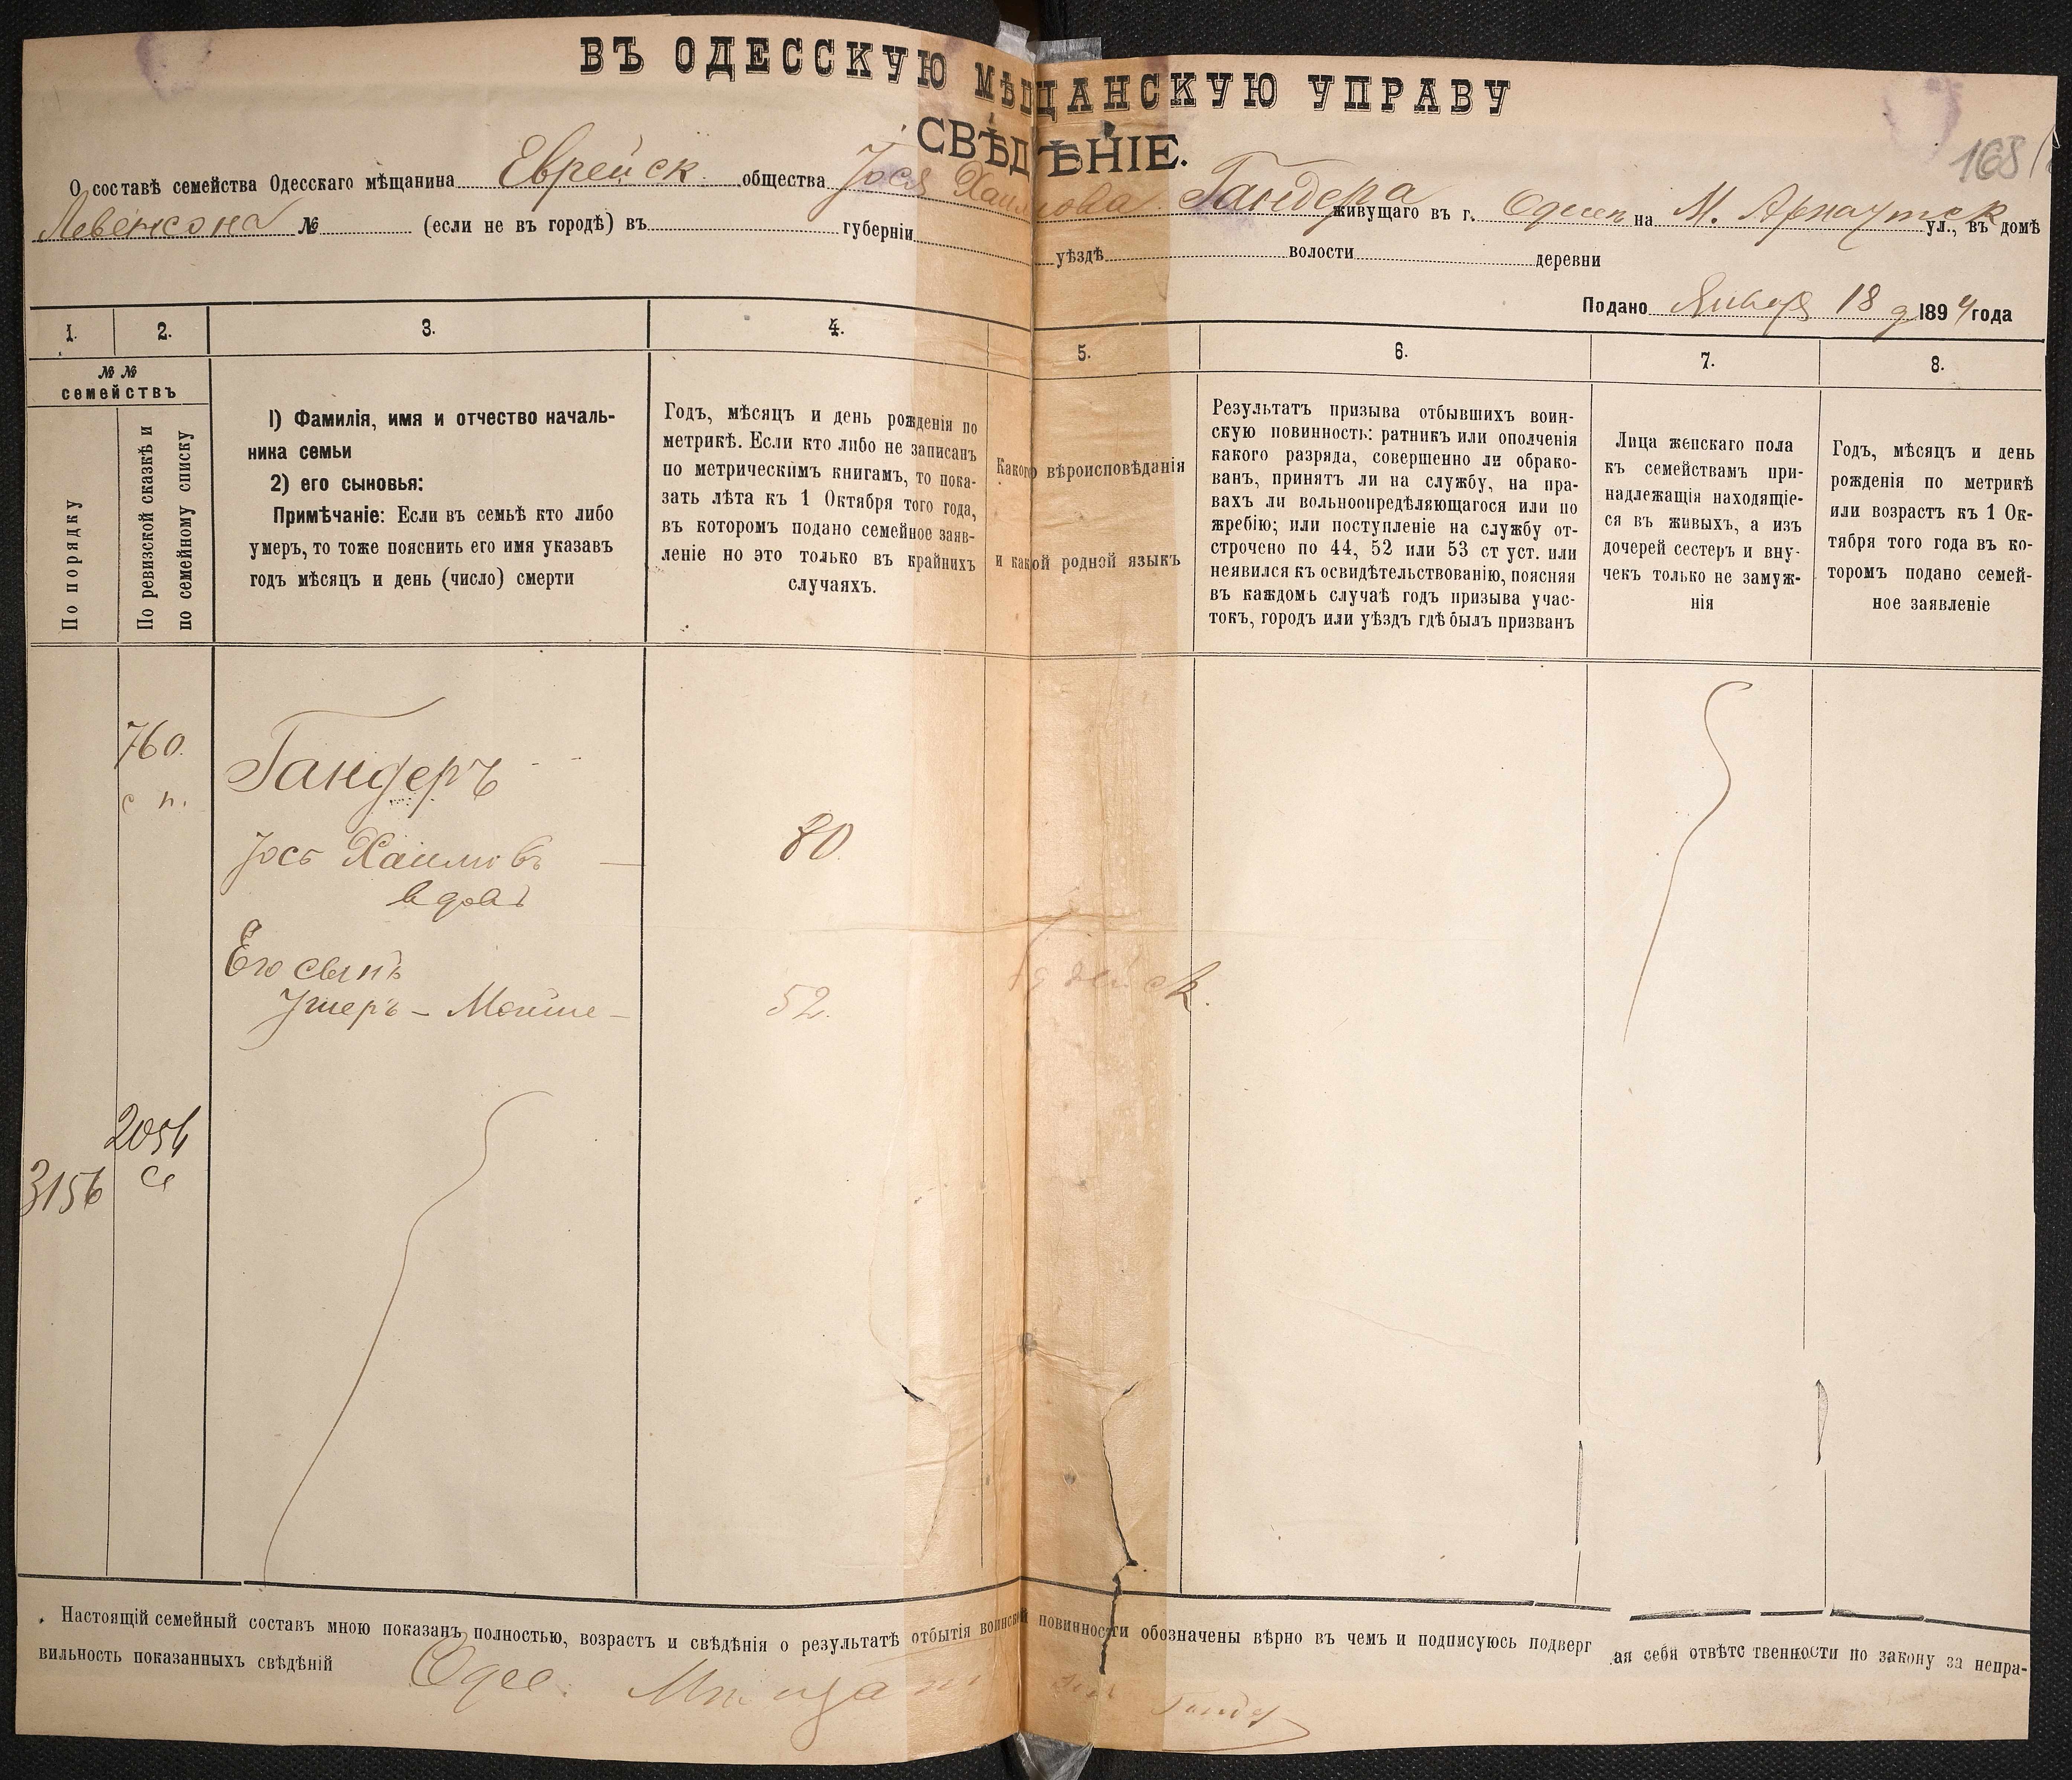 ВЪ ОДЕССКУЮ МѢЩАНСКУЮ УПРАВУ
СВѢДѢНІЕ.
168
О составѣ семейства Одесскаго мѣщанина Еврейск. общества Іося Хаимова Гандера живущаго въ г. Одессѣ на М. Арнаутск ул., въ домѣ
Левензона № (если не въ городѣ) въ губерніи уѣздѣ волости деревни
Подано Января 18 д 1894 года
1. 2. 3. 4. 5. 6. 7. 8.
№ №
семействъ
По порядку
По ревизской сказкѣ и
по семейному списку
1) Фамилія, имя и отчество началь-
ника семьи
2) его сыновья:
Примѣчаніе: Если въ семьѣ кто либо
умеръ, то тоже пояснить его имя указавъ
годъ мѣсяцъ и день (число) смерти
Годъ, мѣсяцъ и день рожденія по
метрикѣ. Если кто либо не записанъ
по метрическимъ книгамъ, то пока-
зать лѣта къ 1 Октября того года,
въ которомъ подано семейное заяв-
леніе но это только въ крайнихъ
случаяхъ.
Какого вѣроисповѣданія
и какой родной языкъ
Результатъ призыва отбывшихъ воин-
скую повинность: ратникъ или ополченія
какого разряда, совершенно ли обрако-
ванъ, принятъ ли на службу, на пра-
вахъ ли вольноопредѣляющагося или по
жребію; или поступленіе на службу от-
строчено по 44, 52 или 53 ст уст. или
неявился къ освидѣтельствованію, поясняя
въ каждомъ случаѣ годъ призыва учас-
токъ, городъ или уѣздъ гдѣ былъ призванъ
Лица женскаго пола
къ семействамъ при-
надлежащія находящіе-
ся въ живыхъ, а изъ
дочерей сестеръ и вну-
чекъ только не замуж-
нія
Годъ, мѣсяцъ и день
рожденія по метрикѣ
или возрастъ къ 1 Ок-
тября того года въ ко-
торомъ подано семей-
ное заявленіе
760.
с п.
Гандеръ
Іось Хаимовъ — 80.
вдовъ
Его сынъ
Ушеръ - Мойше - 52.
2054
3156
Настоящій семейный составъ мною показанъ полностью, возрастъ и свѣдѣнія о результатѣ отбытія воинской повинности обозначены вѣрно въ чемъ и подписуюсь подверг ая себя отвѣтс твенности по закону за непра-
вильность показанныхъ свѣдѣній Одес. Мѣщан